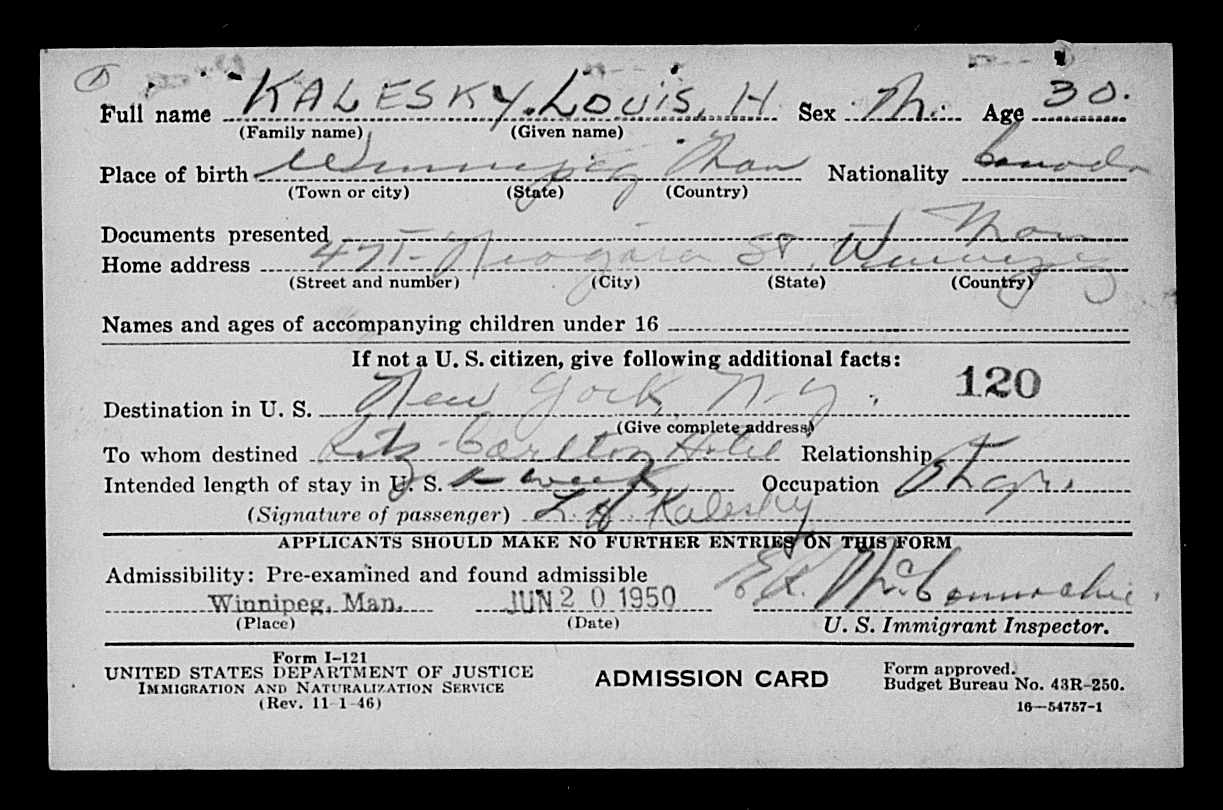 Full name KALESKY. LOUIS, H Sex M. Age 30.
(Family name) (Given name)
Place of birth Winnipeg Man Nationality Canada
(Town or city) (State) (Country)
Documents presented
Man
Home address 471- Niagara St. Winnipeg
(Street and number) (City) (State) (Country)
Names and ages of accompanying children under 16
If not a U. S. citizen, give following additional facts:
120
Destination in U. S. New York, N-Y.
(Give complete address)
To whom destined Ritz-Carlton Hotel Relationship
Intended length of stay in U. S. a week Occupation
(Signature of passenger) L. H. Kalesky
APPLICANTS SHOULD MAKE NO FURTHER ENTRIES ON THIS FORM
Admissibility: Pre-examined and found admissible
Winnipeg, Man. JUN 20 1950
(Place) (Date) U. S. Immigrant Inspector.
Form I-121
UNITED STATES DEPARTMENT OF JUSTICE
IMMIGRATION AND NATURALIZATION SERVICE
(Rev. 11-1-46)
ADMISSION CARD
Form approved.
Budget Bureau No. 43R-250.
16—54757-1